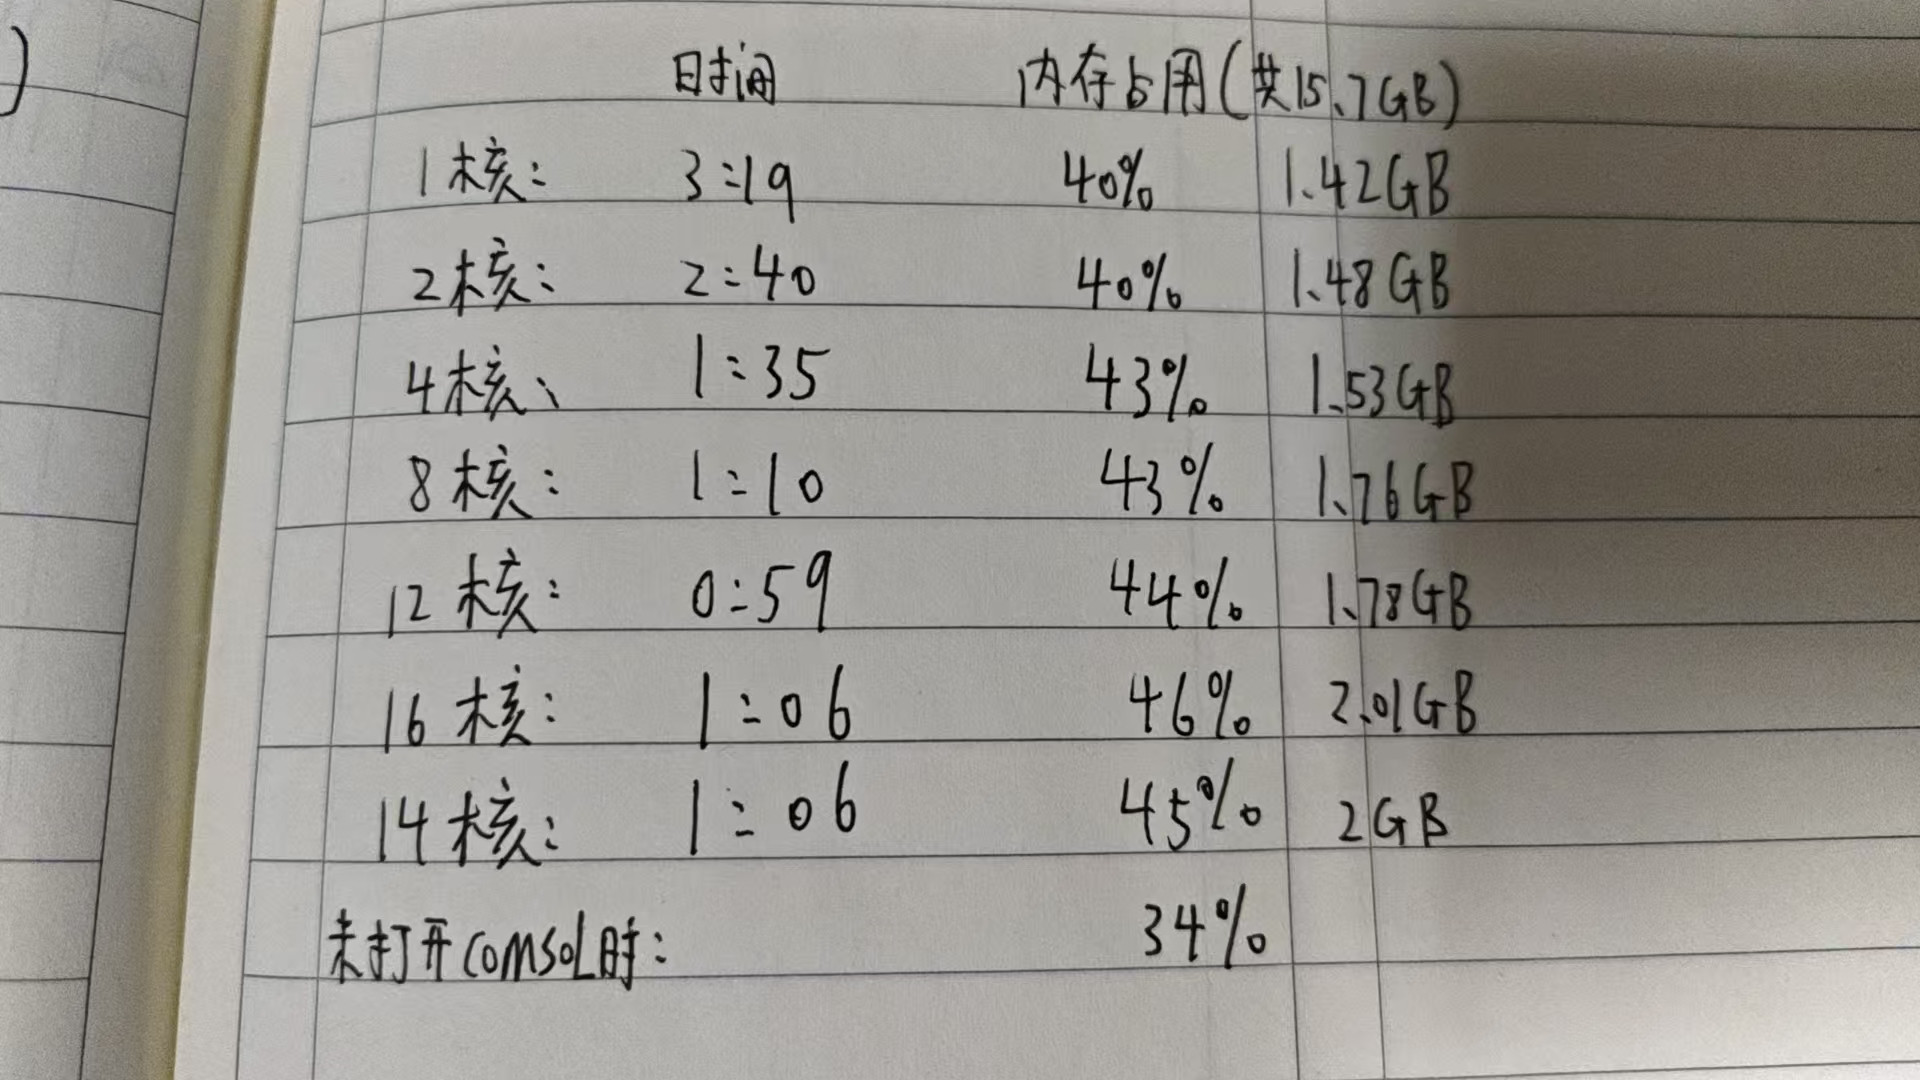 )
时间 内存占用(共15.7GB)
1核: 3:19 40% 1.42GB
2核: 2:40 40% 1.48GB
4核、 1:35 43% 1.53GB
8核: 1:10 43% 1.76GB
12核: 0:59 44% 1.78GB
16核: 1:06 46% 2.01GB
14核: 1:06 45% 2GB
未打开COMSOL时: 34%